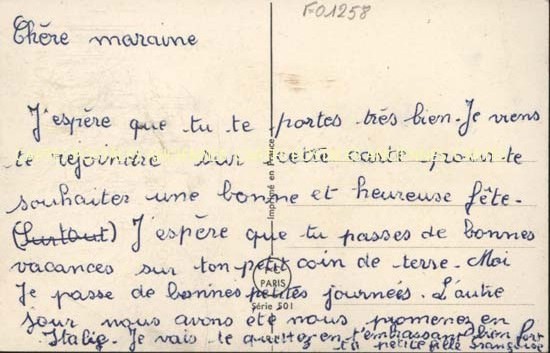 F01258
Chère maraine
J'espère que tu te portes très bien. Je viens
te rejoindre sur cette carte pour te
souhaiter une bonne et heureuse fête.
(Surtout) J'espère que tu passes de bonnes
vacances sur ton petit coin de terre. Moi
Je passe de bonnes petites journées. L'autre
jour nous avons été nous promenez en
Italie. Je vais te quittez en t'embrassant bien fort
ta petite fille Françoise
Imprimé en France
PARIS
Série 501